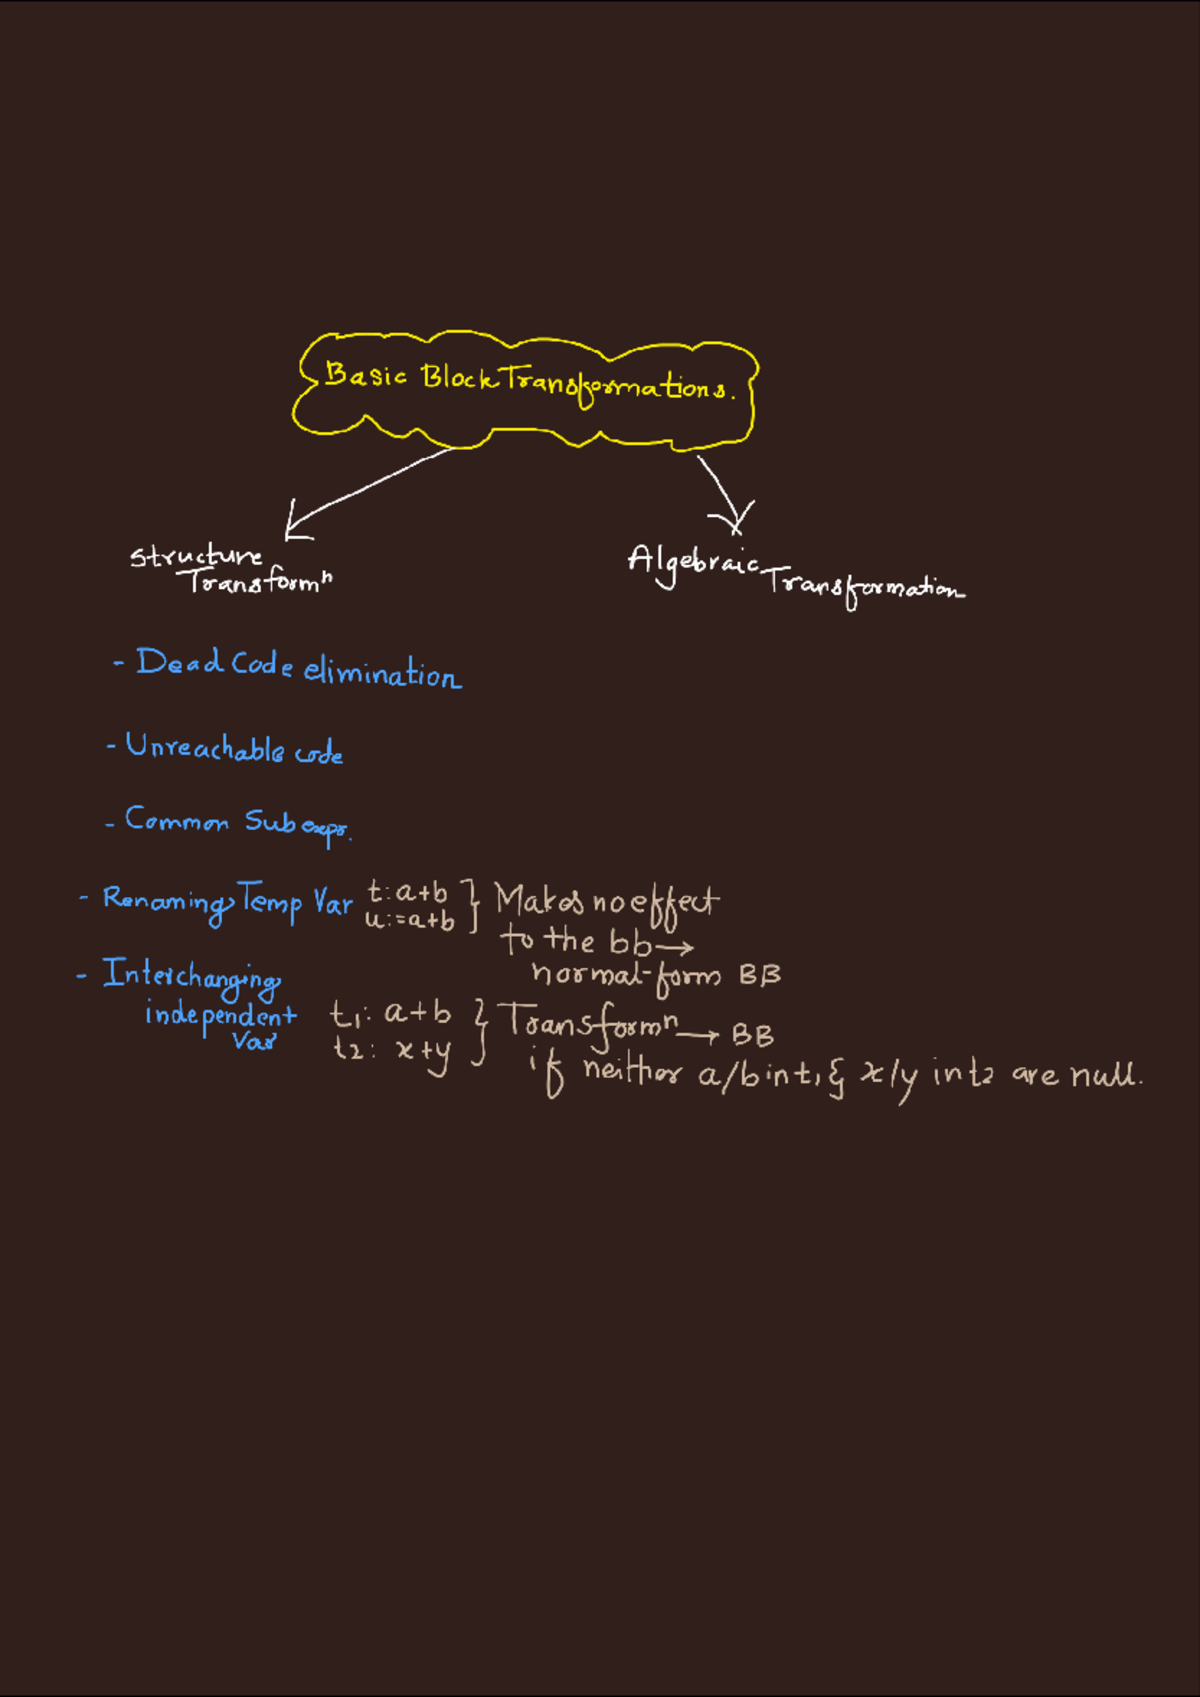 Basic Block Transformations.
Structure
Transformⁿ
Algebraic Transformation
- Dead Code elimination
- Unreachable code
- Common Sub expr.
- Renaming Temp Var t: a+b } Makes no effect
u:=a+b
to the bb→
normal-form BB
- Interchanging
independent
Var
t₁: a+b } Transformⁿ → BB
t₂: x+y
if neither a/b in t₁ & x/y in t₂ are null.